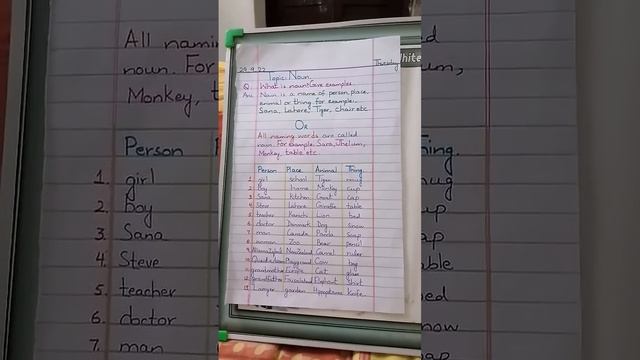 29.9.22 Thursday
Topic: Noun.
Q. What is noun? Give examples
Ans Noun is a name of person, place,
animal or thing. for example:
Sana, Lahore, Tiger, chair etc
Or
All naming words are called
noun. For example Sara, Jhelum,
Monkey, table etc.
Person Place Animal Thing.
1 girl school Tiger mug
2 Boy home Monkey cup
3 Sana kitchen Goat cap
4 Steve Lahore Giraffe table
5 teacher Karachi Lion bed
6 doctor Denmark Dog snow
7 man Canada Panda soap
8 woman Zoo Bear pencil
9 Allama Iqbal NewZealand Camel ruler
10 Quaid-e-Azam Playground Cow bag
11 grandmother Europe Cat glue
12 grandfather Faisalabad Elephant Shirt
13 Lawyer garden Hippopotamus Knife
White
All namin
noun. For
Monkey, t
Person P
1. girl
2. Boy
3. Sana
4. Steve
5. teacher
6. doctor
7. man
um,
hing.
mug
up
ap
ble
bed
now
ap